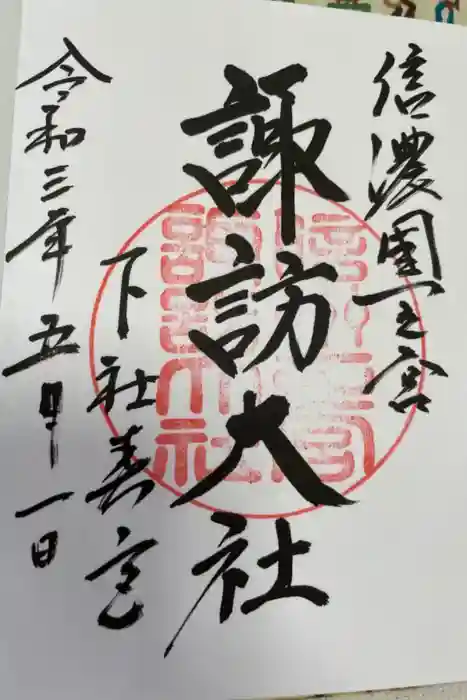 信濃國一之宮
諏訪大社
下社春宮
令和三年五月十一日
諏訪大社